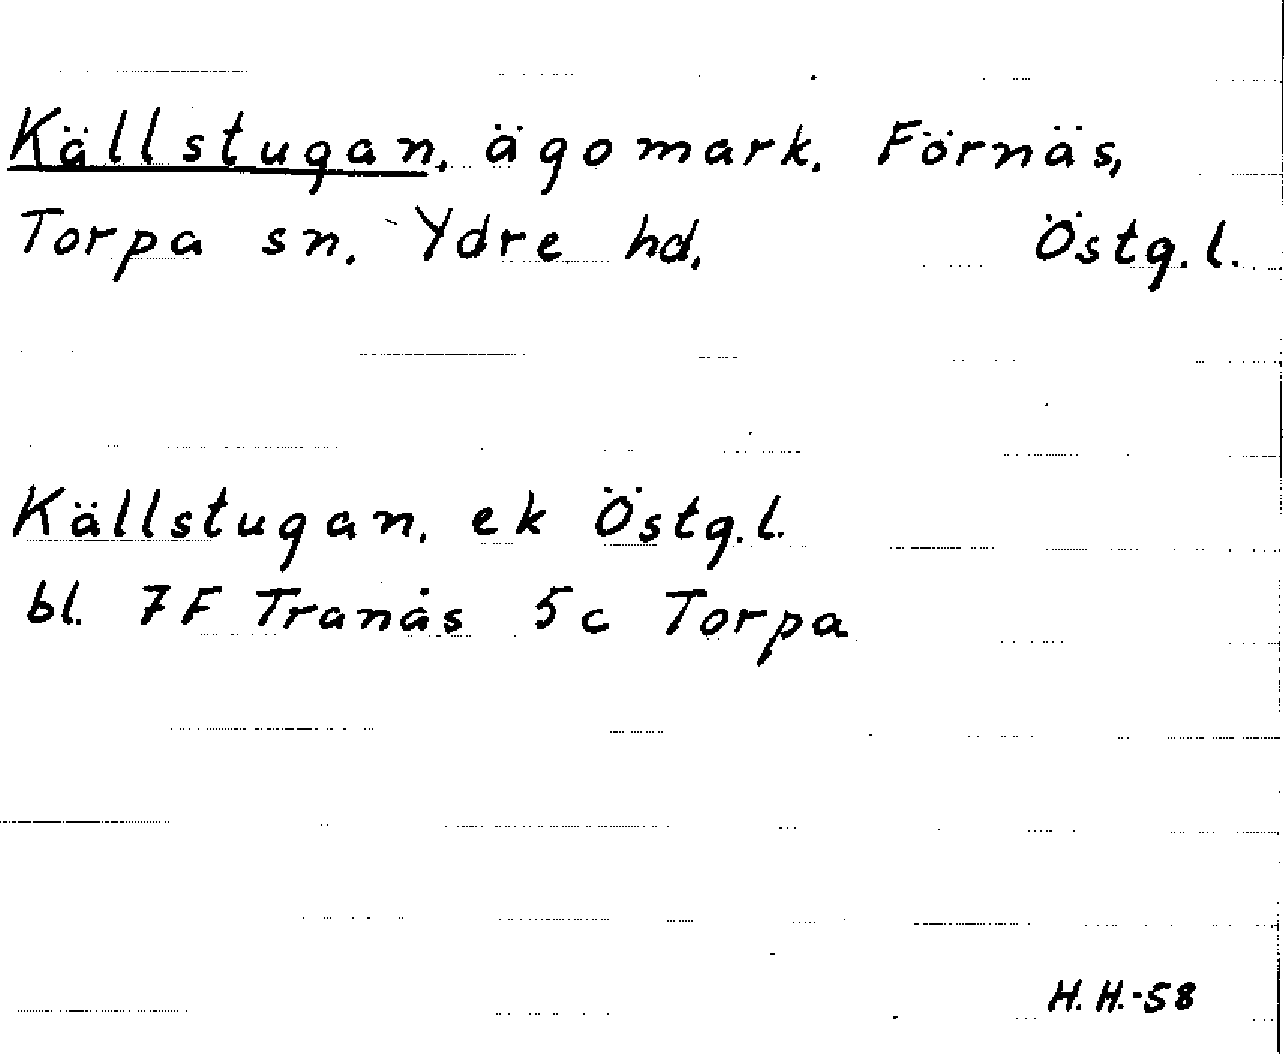 Källstugan, ägomark. Förnäs,
Torpa sn. Ydre hd. Östg.l.
Källstugan. ek Östg.l.
bl. 7F Tranås 5c Torpa
H.H.-58